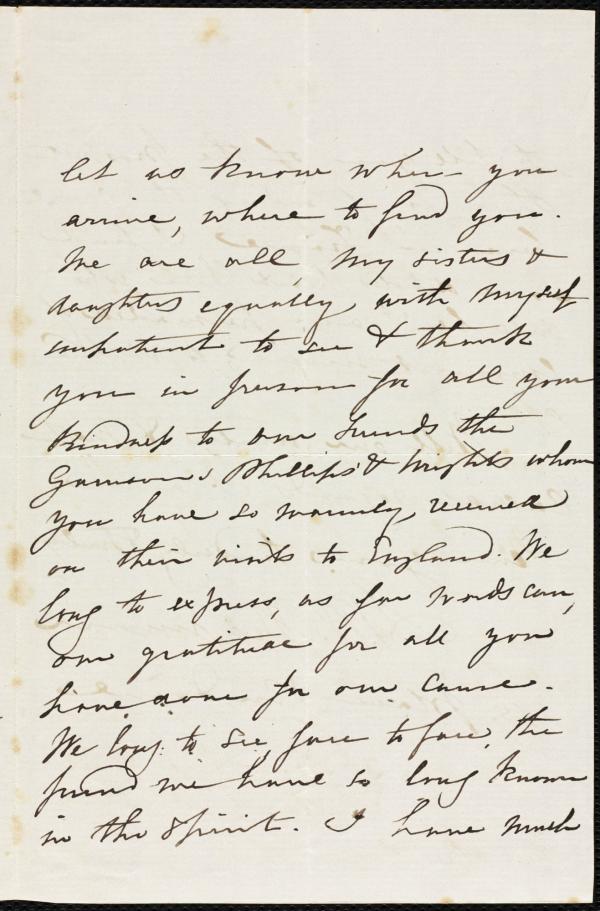 let us know when you
arrive, where to find you.
We are all, my sisters &
daughters equally with myself
impatient to see & thank
you in person for all your
kindness to our friends the
Garrisons, Phillips' & Wrights whom
you have so warmly received
on their visits to England. We
long to express, as far words can,
our gratitude for all you
have done for our cause.
We long to see, face to face, the
friend we have so long known
in the spirit. I have much